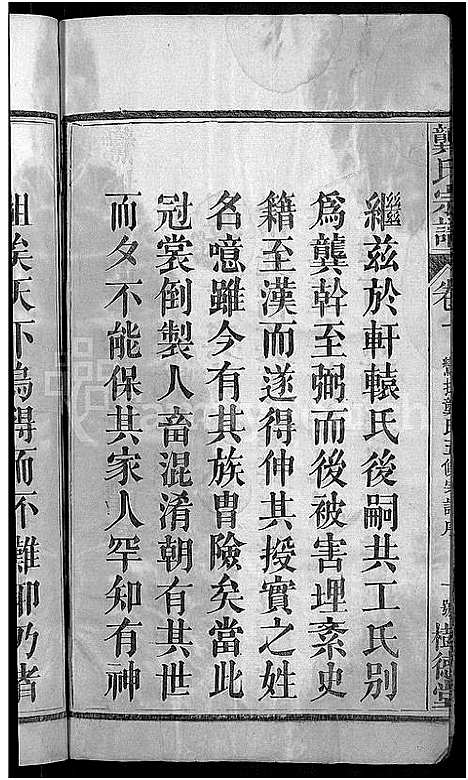 龔氏宗譜
卷一
樹德堂
繼兹於軒轅氏後嗣共工氏别
爲龔幹至弼而後被害理紊史
籍至漢而遂得伸其授實之姓
名噫雖今有其族冑險矣當此
冠裳倒製人畜混淆朝有其世
而夕不能保其家人罕知有神
祖矣天下烏得而不難耶乃者